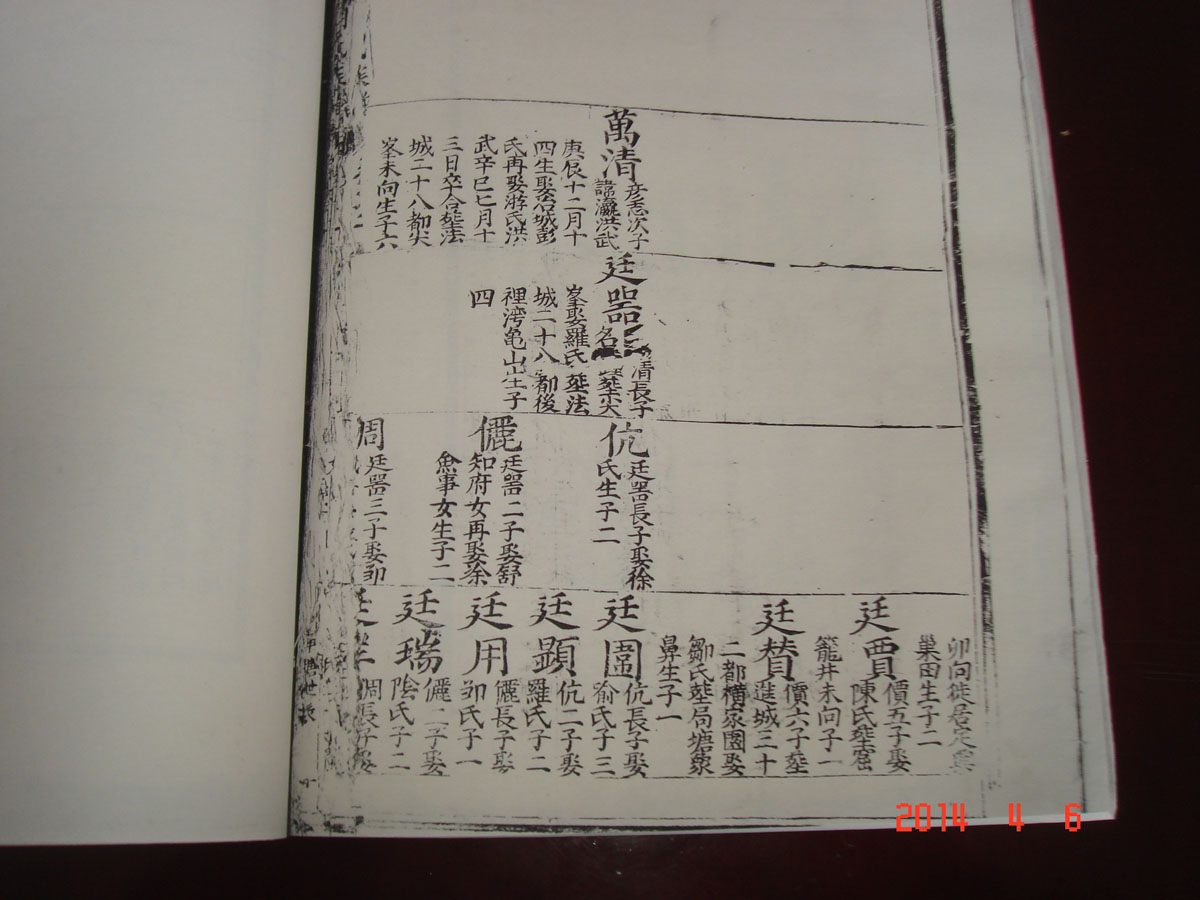 萬清
彦志次子
諱瀛洪武
庚辰十二月十
四生娶石城彭
氏再娶游氏洪
武辛巳七月十
三日卒合塟法
城二十八都尖
峯未向生子六
廷器
清長子
名 塟尖
峯娶羅氏塟法
城二十八都後
裡湾龟山生子
四
伉
廷器長子娶徐
氏生子二
儷
廷器二子娶舒
知府女再娶徐
魚事女生子二
周
廷器三子娶卯
卯向徙居定
巢田生子二
廷賈
價五子娶
陳氏塟窟
籠井未向子一
廷贊
價六子塟
進城三十
二都横家園娶
鄒氏塟局塘
鼻生子一
廷圖
伉長子娶
俞氏子三
廷顯
伉二子娶
羅氏子二
廷用
儷長子娶
卯氏子一
廷瑞
儷二子娶
陰氏子二
周長子娶
2014 4 6